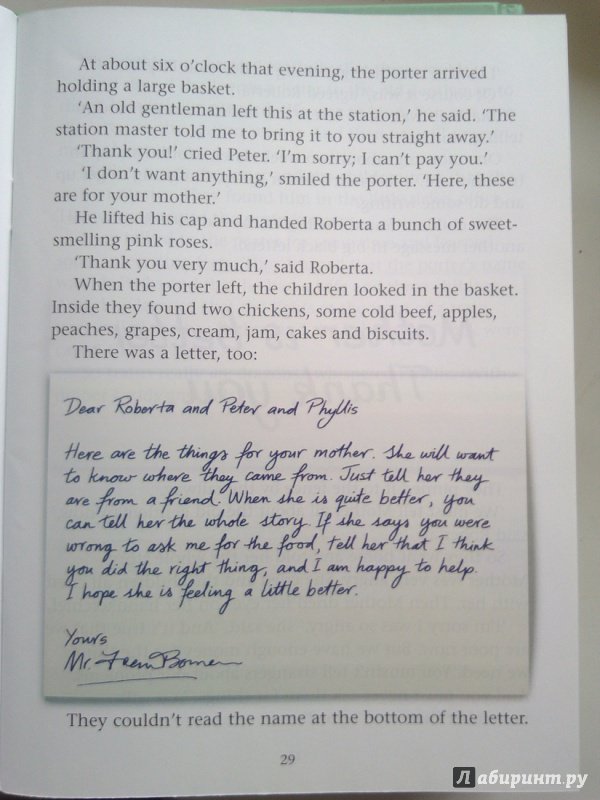 At about six o'clock that evening, the porter arrived
holding a large basket.
'An old gentleman left this at the station,' he said. 'The
station master told me to bring it to you straight away.'
'Thank you!' cried Peter. 'I'm sorry; I can't pay you.'
'I don't want anything,' smiled the porter. 'Here, these
are for your mother.'
He lifted his cap and handed Roberta a bunch of sweet-
smelling pink roses.
'Thank you very much,' said Roberta.
When the porter left, the children looked in the basket.
Inside they found two chickens, some cold beef, apples,
peaches, grapes, cream, jam, cakes and biscuits.
There was a letter, too:
Dear Roberta and Peter and Phyllis
Here are the things for your mother. She will want
to know where they came from. Just tell her they
are from a friend. When she is quite better, you
can tell her the whole story. If she says you were
wrong to ask me for the food, tell her that I think
you did the right thing, and I am happy to help.
I hope she is feeling a little better.
Yours
Mr.
They couldn't read the name at the bottom of the letter.
29
Лабиринт.ру